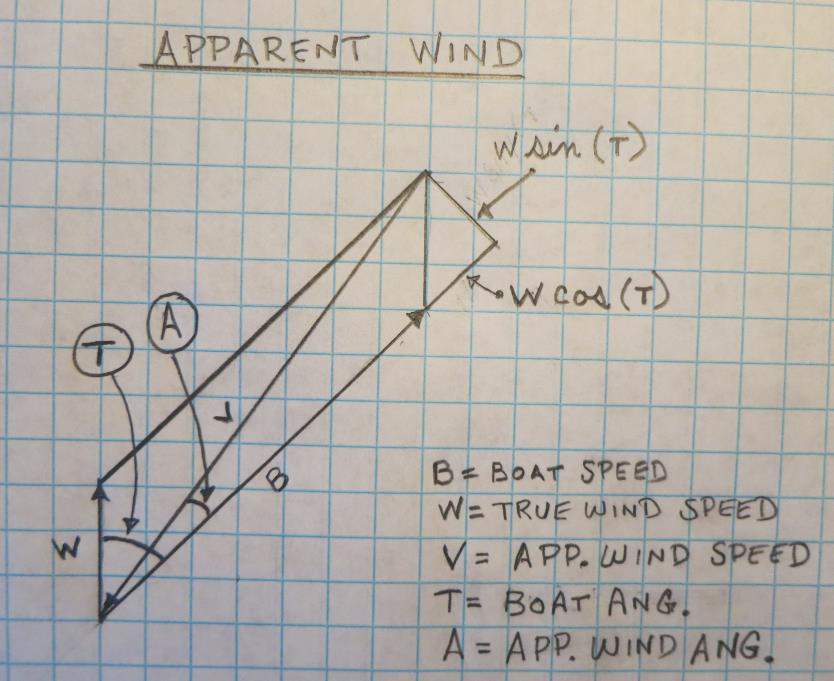 APPARENT WIND
W sin (T)
W cos (T)
A
T
V
B
W
B = BOAT SPEED
W = TRUE WIND SPEED
V = APP. WIND SPEED
T = BOAT ANG.
A = APP. WIND ANG.